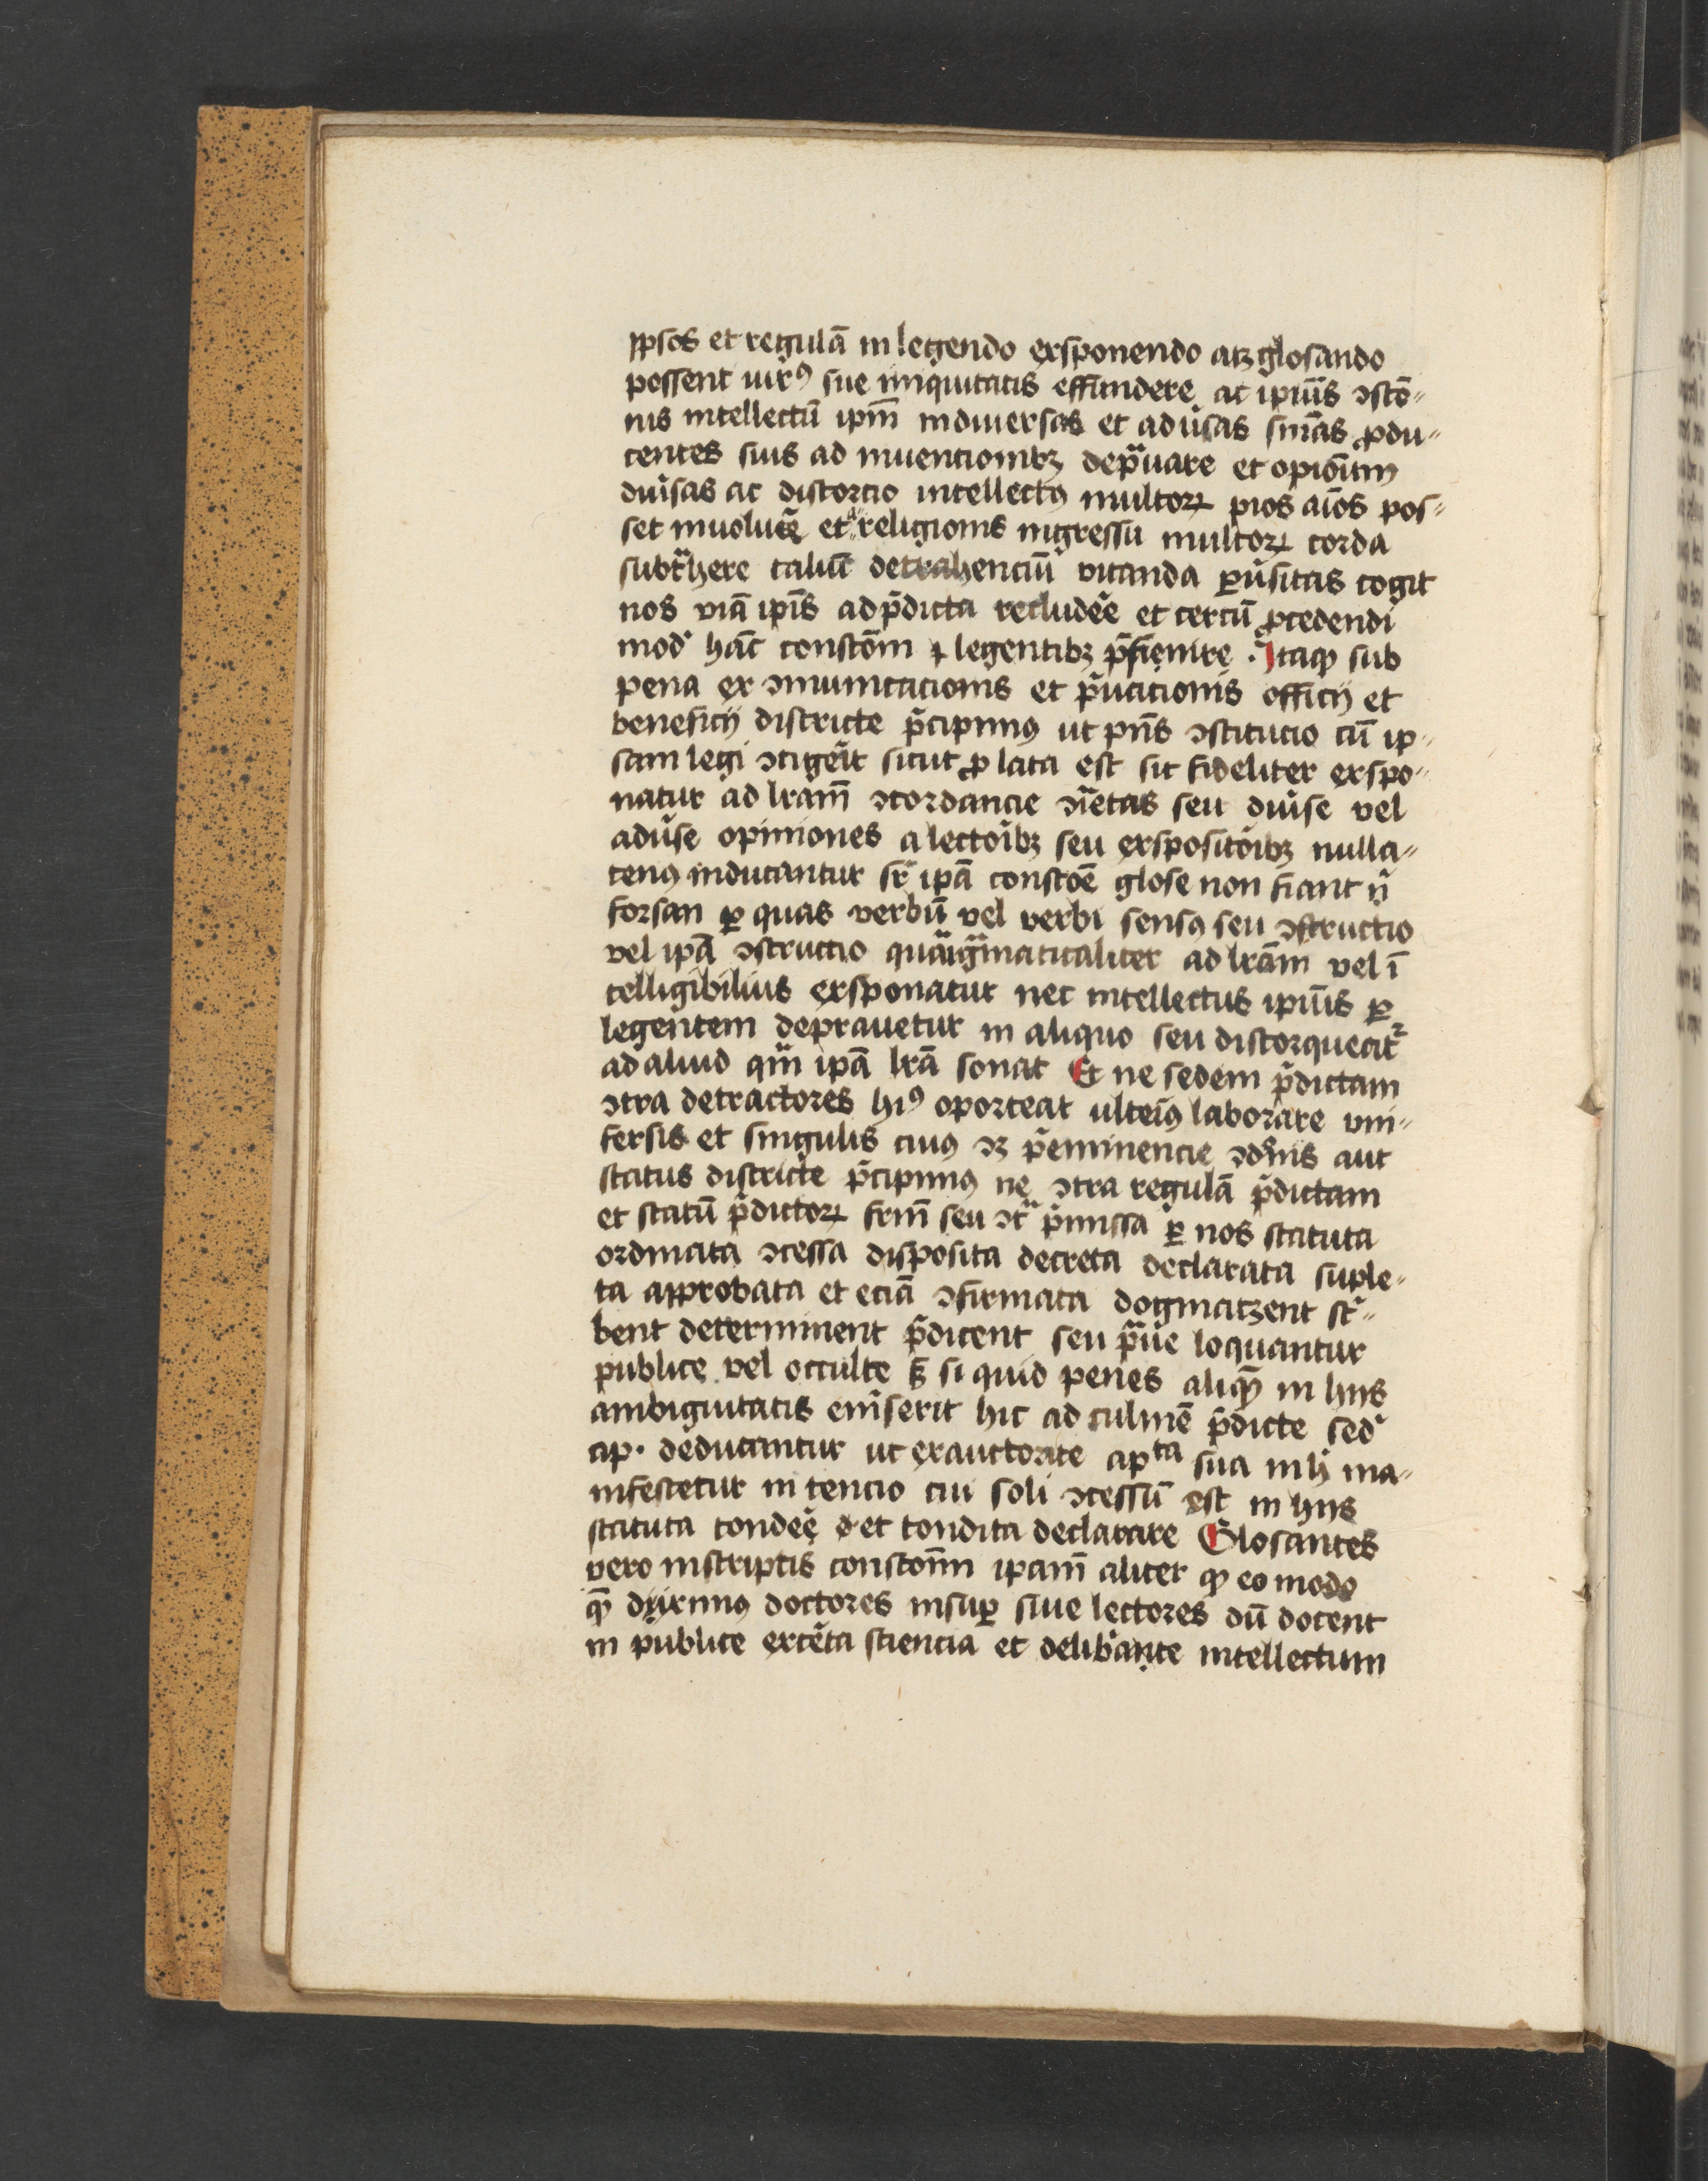 ipsos et regulā in legendo exsponendo atqꝫ glosando
possent uirꝰ sue iniquitatis effundere ac ipīus ꝯstō〃
nis intellectū ipm̄ in diuersas et aduˀsas sniās ꝓdu〃
centes suis ad inuencionibꝫ depͣuare et opiōīum
diuˀsas ac distorcio intellectꝰ multoꝝ pios aīos pos〃
set inuoluēˀ et ͣ religionis ingressu multoꝝ corda
subtͣhere taliū detrahenciū vitanda ꝑuˀsitas cogit
nos viā ipīs ad p̄dicta recludēˀe et certū ꝓcedendi
modˀ hāc constōm ⁊ legentibꝫ p̄fienire . Itaqꝫ sub
pena ex ꝯmunicacionis et pͥuacionis officij et
beneficij districte p̄cipimꝰ ut pn̄s ꝯstitucio cū ip〃
sam legi ꝯtigeˀit sicut ꝓ lata est sic fideliter exspo〃
natur ad lrām ꝯcordancie ꝯͣetas seu diuˀse vel
aduˀse opiniones a lectoibꝫ seu exspositoibꝫ nulla〃
tenꝰ inducantur srͣ ipā constōe glose non fiant nͥ
forsan ꝑ quas verbū vel verbi sensꝰ seu ꝯstructio
vel ipā ꝯstructio quaͣigͣmaticaliter ad lrām vel ī
telligibilius exsponatur nec intellectus ipīus ꝑ
legentem deprauetur in aliquo seu distorqueatˀ
ad aliud qͣm ipā lrā sonat Et ne sedem p̄dictam
ꝯtra detractores hiꝰ oporteat ulteiꝰ laborare vni〃
fersis et singulis cuiꝰ ꝯꝫ p̄eminencie ꝯdōnis aut
status districte p̄cipimꝰ ne ꝯtra regulā p̄dictam
et statū p̄dictoꝝ frm̄ seu ꝯtͣ p̄missa ꝑ nos statuta
ordinata ꝯcessa disposita decreta declarata suple〃
ta approbata et eciā ꝯfirmata dogmatzent scͥ〃
bent determinent p̄dicent seu pͣue loquantur
publice vel occulte sꝫ si quid penes aliqꝫ in hijs
ambiguitatis emˀserit hic ad culmē p̄dicte sedˀ
ap. deducantur ut ex auctorate apᵗᵃ sua in hͥ ma〃
nifestetur in tencio cui soli ꝯcessū est in hijs
statuta condeēˀ et condita declarare Glosantes
vero in scriptis constōnn ipam̄ aliter qꝫ eo modo
qꝫ diximꝰ doctores insuꝑ siue lectores dū docent
in publice exceˀta sciencia et delibˀante intellectum